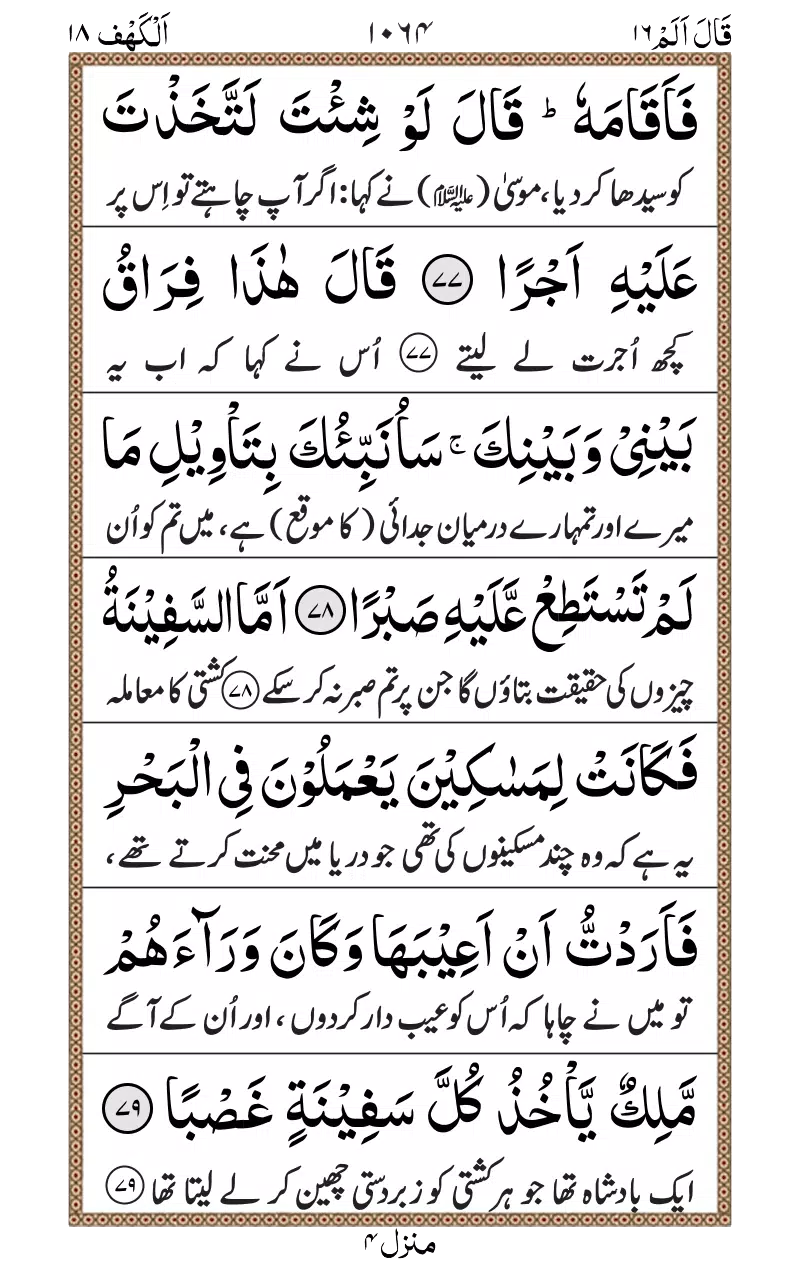 قَالَ اَلَمْ ١٦ ١٠٦۴ اَلْكَهْف ١٨
فَاَقَامَهٗ ؕ قَالَ لَوْ شِئْتَ لَتَّخَذْتَ
کو سیدھا کر دیا، موسیٰ (علیہ السلام) نے کہا: اگر آپ چاہتے تو اِس پر
عَلَيْهِ اَجْرًا ٧٧ قَالَ هٰذَا فِرَاقُ
کچھ اُجرت لے لیتے ٧٧ اُس نے کہا کہ اب یہ
بَيْنِيْ وَبَيْنِكَ ۚ سَاُنَبِّئُكَ بِتَاْوِيْلِ مَا
میرے اور تمہارے درمیان جدائی (کا موقع) ہے، میں تم کو اُن
لَمْ تَسْتَطِعْ عَّلَيْهِ صَبْرًا ٧٨ اَمَّا السَّفِيْنَةُ
چیزوں کی حقیقت بتاؤں گا جن پر تم صبر نہ کر سکے ٧٨ کشتی کا معاملہ
فَكَانَتْ لِمَسٰكِيْنَ يَعْمَلُوْنَ فِي الْبَحْرِ
یہ ہے کہ وہ چند مسکینوں کی تھی جو دریا میں محنت کرتے تھے،
فَاَرَدْتُّ اَنْ اَعِيْبَهَا وَكَانَ وَرَآءَهُمْ
تو میں نے چاہا کہ اُس کو عیب دار کر دوں، اور اُن کے آگے
مَّلِكٌ يَّاْخُذُ كُلَّ سَفِيْنَةٍ غَصْبًا ٧٩
ایک بادشاہ تھا جو ہر کشتی کو زبردستی چھین کر لے لیتا تھا ٧٩
منزل ۴